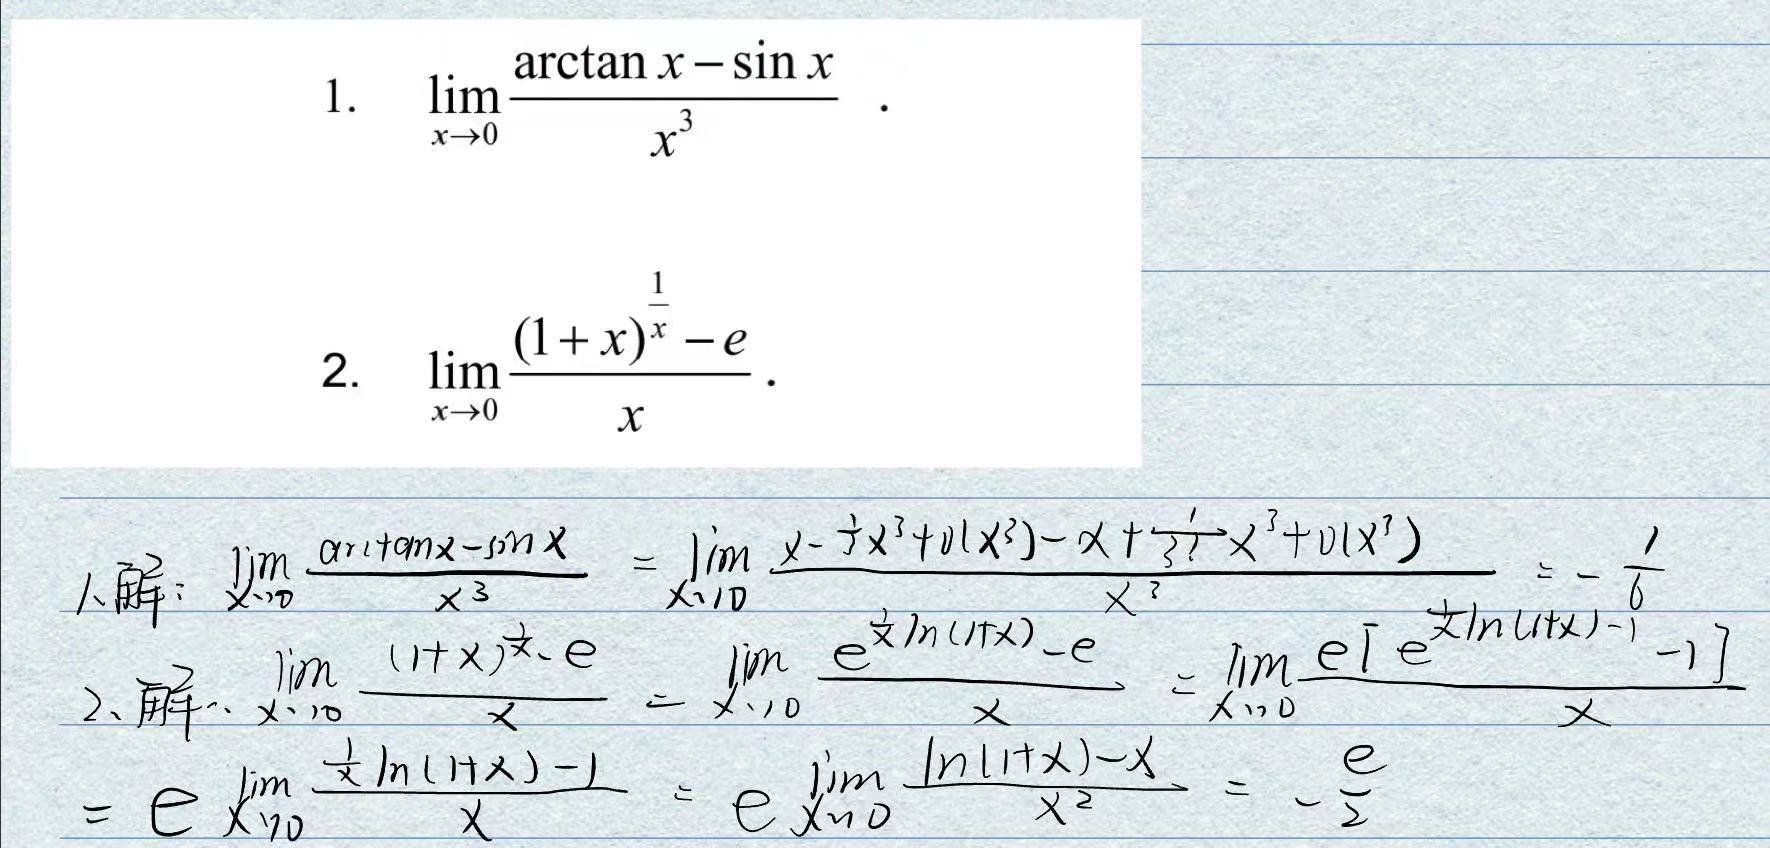 1. lim_{x→0} (arctan x − sin x) / x³ .
2. lim_{x→0} ((1+x)^{1/x} − e) / x .
1、解: lim_{x→0} (arctanx − sinx) / x³ = lim_{x→0} (x − ⅓x³ + o(x³) − x + (1/3!)x³ + o(x³)) / x³ = − 1/6
2、解: lim_{x→0} ((1+x)^{1/x} − e) / x = lim_{x→0} (e^{(1/x)ln(1+x)} − e) / x = lim_{x→0} e[e^{(1/x)ln(1+x)−1} − 1] / x
= e lim_{x→0} ((1/x)ln(1+x) − 1) / x = e lim_{x→0} (ln(1+x) − x) / x² = − e/2